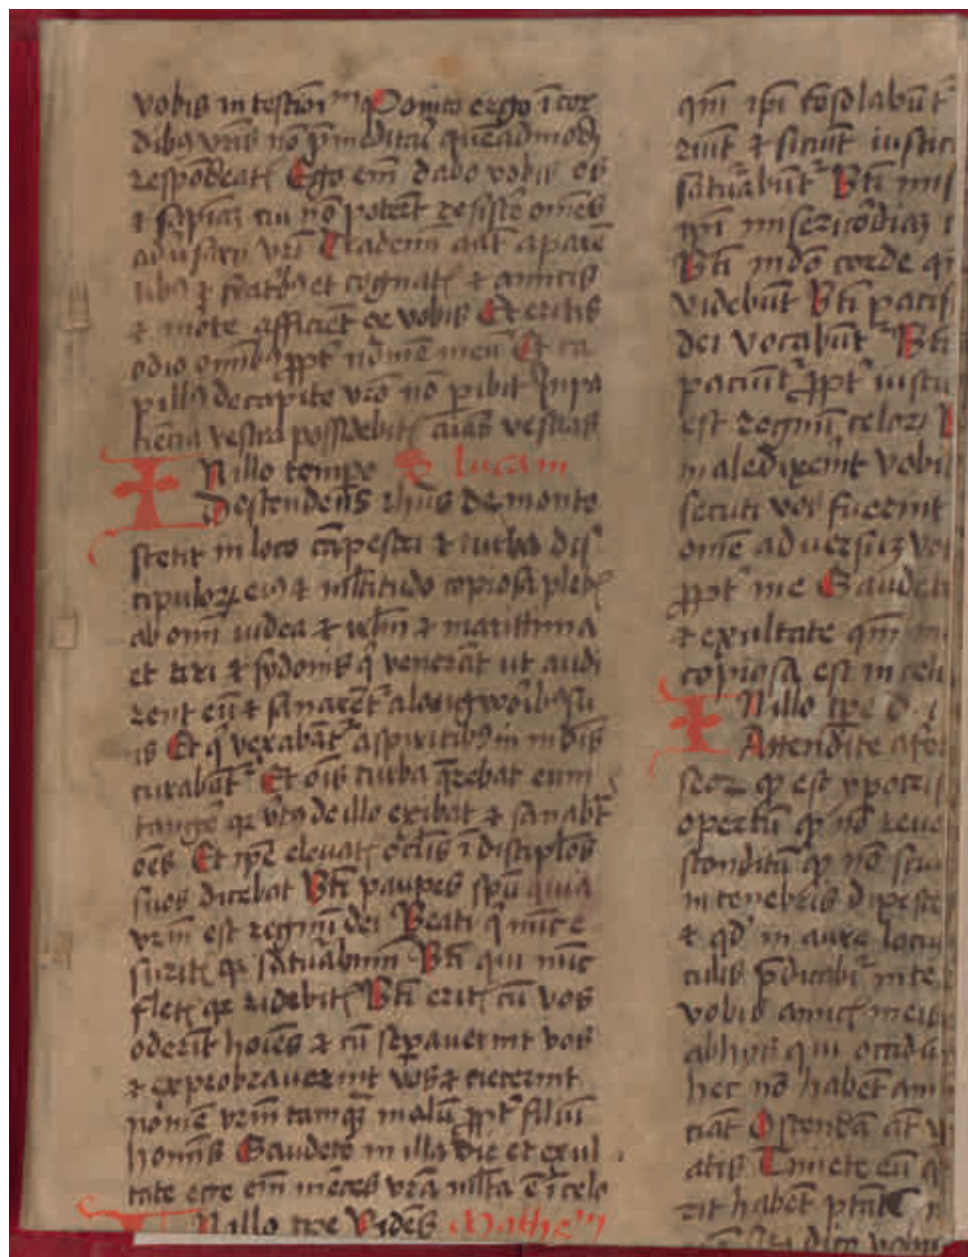 vobis in testīoīm Ponite ergo ī cor
dibȝ vr̄is nō p̄meditāī quēadmodȝ
respōdeatꝭ Ego em̄ dabo vobis os
⁊ sapīaȝ cui nō poterīt resiste͞ om̄es
adv̄sarii vr̄i Trademī aūt a parē
tibȝ ⁊ fratribȝ et cognatꝭ ⁊ amicis
⁊ morte afficiēt ex vobis Et eritis
odio om̄ibȝ ꝓpt̄ nōmē meū Et ca
pillȝ de capite vr̄o nō ꝑibit In pa
tiēcia vestra possidebitꝭ aīas vestras
IN illo tempe Lucam
Descendens ihūs de monte
stetit in loco cāpestri ⁊ turba dis
cipulorꝝ eiȝ ⁊ ml̄titudo copiosa pleb
ab om̄i iudea ⁊ ihrlm̄ ⁊ maritima
et tiri ⁊ sydonis q̄ venerāt ut audi
rent eū ⁊ sanarēt᷑ a lāguoribȝ su
is Et q̄ vexabāt᷑ a spiritibȝ in mūdis
curabāt᷑ Et oīs turba q̄rebat eum
tangē qꝛ v̄tȝ de illo exibat ⁊ sanab̄t
oēs Et ip̄e elevatꝭ oc̄lis ī discipl̄os
suos dicebat Bt̄i paupes spū quia
vrm̄ est regnū dei Beati q̄ nūc e
suritꝭ qꝛ sāturabimī Bt̄i qui nūc
fletꝭ qꝛ ridebitꝭ Bt̄i eritꝭ cū vos
oderīt hoīes ⁊ cū seꝑaverint vos
⁊ exprobraverint vos ⁊ eiecerint
nomē vrm̄ tamqȝ malū ꝓpt̄ filiū
hominis Gaudete in illa die et exul
tate ecce em̄ mēces vr̄a ml̄ta ē ī celo
IN illo tp̄e Videns Mathe
qm̄ ip̄i cōsolabūt᷑
riūt ⁊ siciūt iustic
sāturabūt᷑ Bt̄i mis
ip̄i misericōdiaȝ
Bt̄i mūdo corde q
videbūt Bt̄i pacif
dei vocabūt᷑ Bt̄i
paciūt᷑ ꝓpt̄ iustic
est regnū celorꝝ
maledixerint vobi
secuti vos fuerint
om̄e adversuȝ vo
ꝓpt̄ me Gaudet
⁊ exultate qm̄
copiosa est in celi
IN illo tp̄e d
Attendite a fer
seoꝝ qꝫ est ypocris
opertū qꝫ nō reve
sconditū qꝫ nō scia
in tenebris dixisti
⁊ qd̄ in aure locu
culis p̄dicabi᷑ in te
vobis amicꝭ meis
ab hijs qui occidū
hec nō habēt am
ciāt Ostendā aūt
atis Timete eū q
rit habet p̄tāte
dico vobis